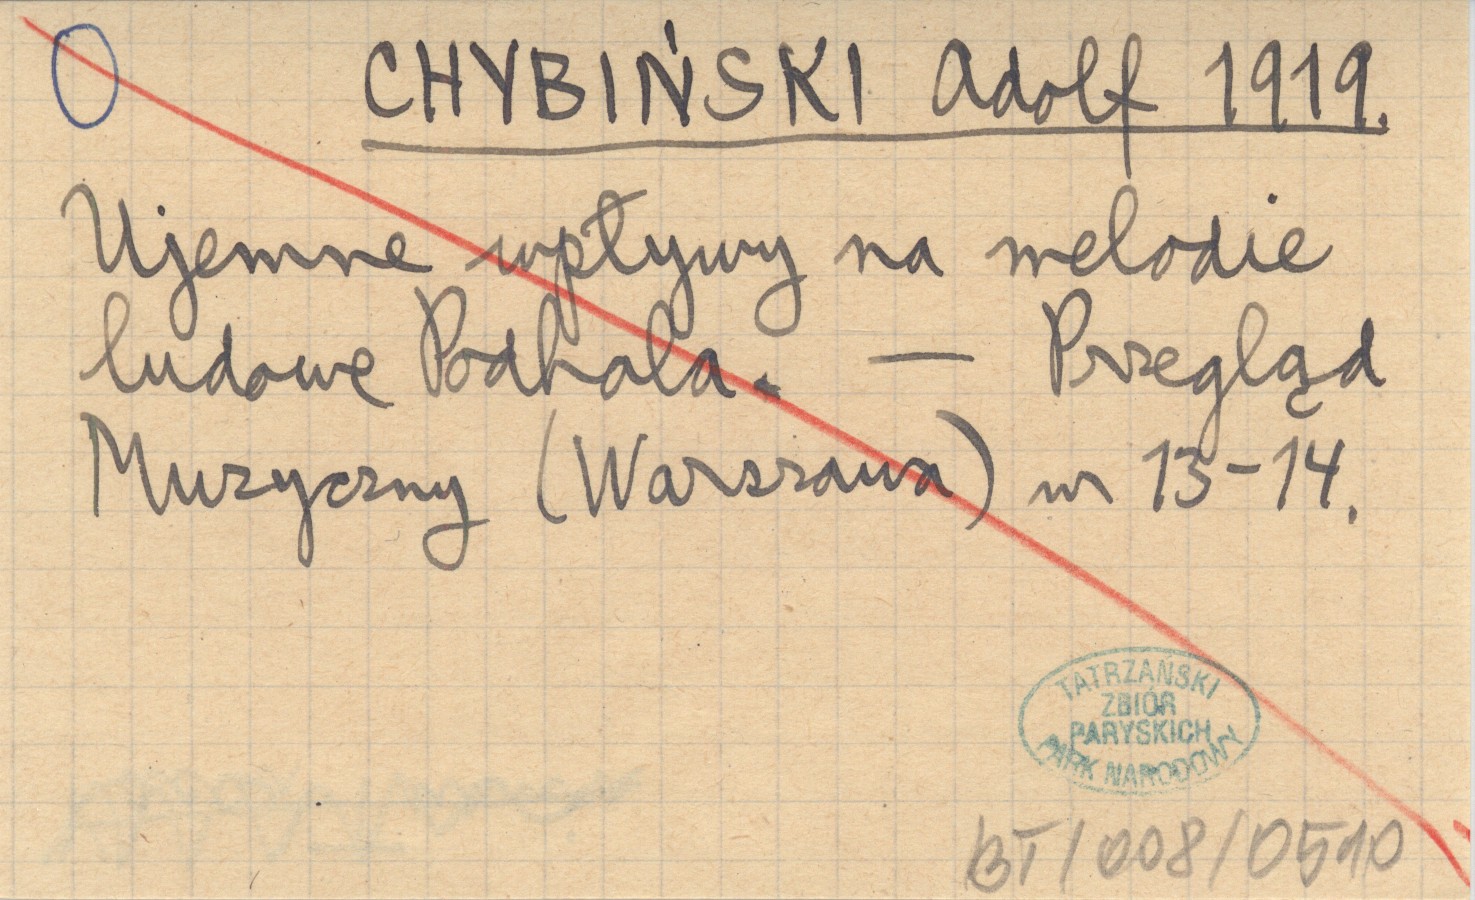 CHYBIŃSKI Adolf 1919.
Ujemne wpływy na melodie
ludowe Podhala. — Przegląd
Muzyczny (Warszawa) nr 13-14.
TATRZAŃSKI
ZBIÓR
PARYSKICH
PARK NARODOWY
BT/008/0510